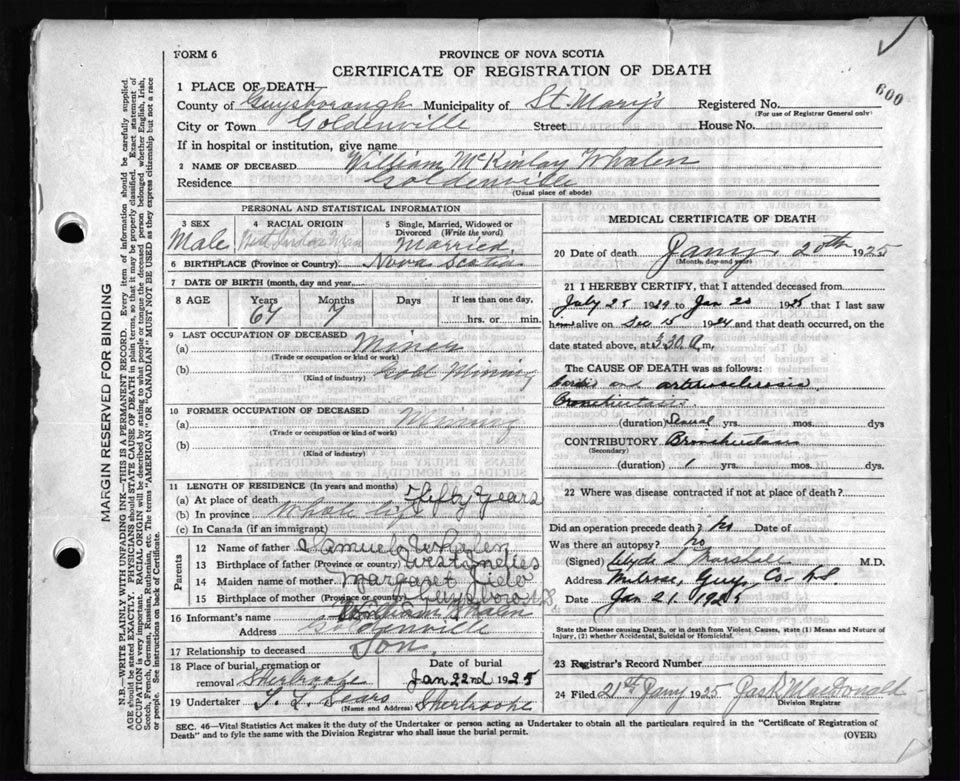 FORM 6
PROVINCE OF NOVA SCOTIA
CERTIFICATE OF REGISTRATION OF DEATH
600
1 PLACE OF DEATH
County of Guysborough Municipality of St. Mary's Registered No.
(For use of Registrar General only)
City or Town Goldenville Street House No.
If in hospital or institution, give name
2 NAME OF DECEASED William McKinlay Whalen
Residence Goldenville
(Usual place of abode)
MARGIN RESERVED FOR BINDING
N.B.—WRITE PLAINLY WITH UNFADING INK—THIS IS A PERMANENT RECORD. Every item of information should be carefully supplied.
AGE should be stated EXACTLY. PHYSICIANS should STATE CAUSE OF DEATH in plain terms, so that it may be properly classified. Exact statement of
OCCUPATION is very important. RACIAL ORIGIN will be described by stating to what people or tongue the deceased person belonged whether English, Irish,
Scotch, French, German, Russian, Ruthenian, etc. The terms "AMERICAN" OR "CANADIAN" MUST NOT BE USED as they express citizenship but not a race
or people. See instructions on back of Certificate.
PERSONAL AND STATISTICAL INFORMATION
3 SEX
Male
4 RACIAL ORIGIN
5 Single, Married, Widowed or
Divorced (Write the word)
Married
6 BIRTHPLACE (Province or Country) Nova Scotia
7 DATE OF BIRTH (month, day and year)
8 AGE Years Months Days If less than one day,
67 7 hrs. or min.
9 LAST OCCUPATION OF DECEASED
(a) Miner
(Trade or occupation or kind or work)
(b) Gold Mining
(Kind of industry)
10 FORMER OCCUPATION OF DECEASED
(a) Mining
(Trade or occupation or kind of work)
(b)
(Kind of industry)
11 LENGTH OF RESIDENCE (In years and months)
(a) At place of death Fifty Years
(b) In province Whole life
(c) In Canada (if an immigrant)
Parents
12 Name of father Samuel Whalen
13 Birthplace of father (Province or country) West Indies
14 Maiden name of mother Margaret
15 Birthplace of mother (Province or country) Guysboro N S
16 Informant's name William Whalen
Address Goldenville
17 Relationship to deceased Son
18 Place of burial, cremation or
removal Sherbrooke
Date of burial
Jan 22nd 1925
19 Undertaker Sherbrooke
(Name and Address)
MEDICAL CERTIFICATE OF DEATH
20 Date of death Jany. 20th 1925
(Month, day and year)
21 I HEREBY CERTIFY, that I attended deceased from
July 25 19 to Jan 20 1925 that I last saw
alive on Dec 15 1924 and that death occurred, on the
date stated above, at 3.30 a m,
The CAUSE OF DEATH was as follows:
and arteriosclerosis
Bronchiectasis
(duration) yrs. mos. dys
CONTRIBUTORY Bronchiectasis
(Secondary)
(duration) 1 yrs. mos. dys.
22 Where was disease contracted if not at place of death?
Did an operation precede death? no Date of
Was there an autopsy? no
(Signed) Clyde S Marshall M.D.
Address Guys. Co. N S
Date Jan 21. 1925
State the Disease causing Death, or in death from Violent Causes, state (1) Means and Nature of
Injury, (2) whether Accidental, Suicidal or Homicidal.
23 Registrar's Record Number
24 Filed 21st Jany 1925 MacDonald
Division Registrar
SEC. 46—Vital Statistics Act makes it the duty of the Undertaker or person acting as Undertaker to obtain all the particulars required in the "Certificate of Registration of
Death" and to fyle the same with the Division Registrar who shall issue the burial permit.
(OVER)